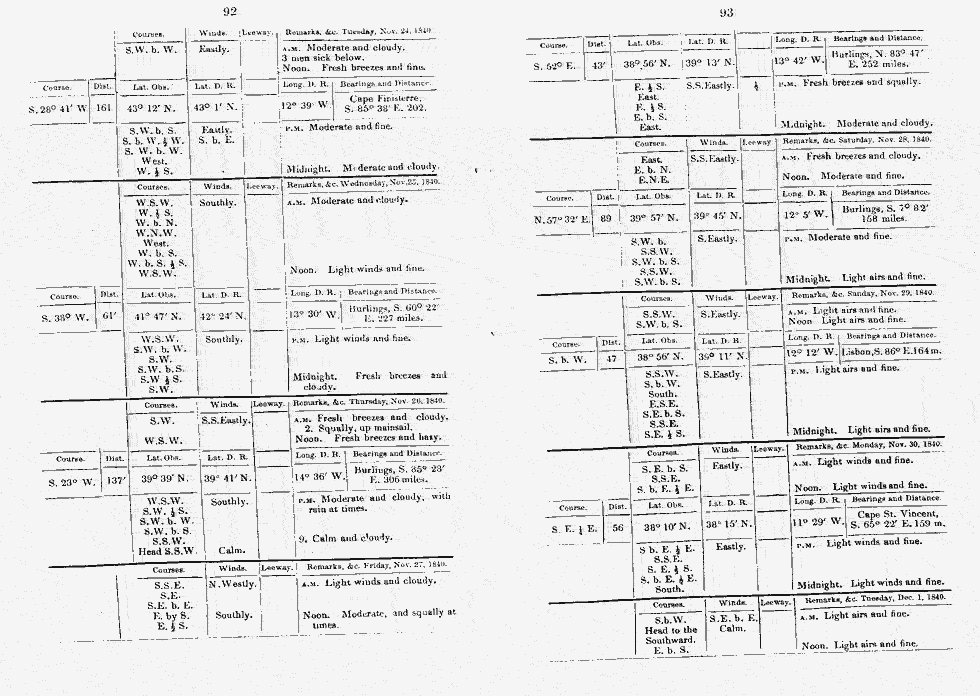 92
Courses. Winds. Leeway. Remarks, &c. Tuesday, Nov. 24, 1840
S.W. b. W. Eastly. A.M. Moderate and cloudy.
3 men sick below.
Noon. Fresh breezes and fine.
Course. Dist. Lat. Obs. Lat. D. R. Long. D. R. Bearings and Distance.
S. 28° 41' W. 161 43° 12' N. 43° 1' N. 12° 39' W. Cape Finisterre,
S. 85° 38' E. 202.
S.W. b. S. Eastly. P.M. Moderate and fine.
S. b. W. ½ W. S. b. E.
S. W. b. W.
West.
W. ½ S. Midnight. Moderate and cloudy.
Courses. Winds. Leeway. Remarks, &c. Wednesday, Nov. 25, 1840.
W.S.W. Southly. A.M. Moderate and cloudy.
W. ½ S.
W. b. N.
W.N.W.
West.
W. b. S.
W. b. S. ½ S.
W.S.W. Noon. Light winds and fine.
Course. Dist. Lat. Obs. Lat. D. R. Long. D. R. Bearings and Distance.
S. 38° W. 61' 41° 47' N. 42° 24' N. 13° 30' W. Burlings, S. 60° 22'
E. 227 miles.
W.S.W. Southly. P.M. Light winds and fine.
S.W. b. W.
S.W.
S.W. b. S.
S.W ½ S. Midnight. Fresh breezes and
S.W. cloudy.
Courses. Winds. Leeway. Remarks, &c. Thursday, Nov. 26, 1840.
S.W. S.S.Eastly. A.M. Fresh breezes and cloudy.
2. Squally, up mainsail.
W.S.W. Noon. Fresh breezes and hazy.
Course. Dist. Lat. Obs. Lat. D. R. Long. D. R. Bearings and Distance.
S. 23° W. 137' 39° 39' N. 39° 41' N. 14° 36' W. Burlings, S. 85° 23'
E. 306 miles.
W.S.W. Southly. P.M. Moderate and cloudy, with
S.W. ½ S. rain at times.
S.W. b. W.
S.W. b. S.
S.S.W. 9. Calm and cloudy.
Head S.S.W. Calm.
Courses. Winds. Leeway. Remarks, &c. Friday, Nov. 27, 1840.
S.S.E. N.Westly. A.M. Light winds and cloudy.
S.E.
S.E. b. E.
E. by S. Southly. Noon. Moderate, and squally at
E. ½ S. times.
93
Course. Dist. Lat. Obs. Lat. D. R. Long. D. R. Bearings and Distance.
S. 52° E. 43' 38° 56' N. 39° 13' N. 13° 42' W. Burlings, N. 83° 47'
E. 252 miles.
E. ½ S. S.S.Eastly. P.M. Fresh breezes and squally.
East.
E. ½ S.
E. b. S.
East. Midnight. Moderate and cloudy.
Courses. Winds. Leeway Remarks, &c. Saturday, Nov. 28, 1840.
East. S.S.Eastly. A.M. Fresh breezes and cloudy.
E. b. N.
E.N.E. Noon. Moderate and fine.
Course. Dist. Lat. Obs. Lat. D. R. Long. D. R. Bearings and Distance.
N. 57° 32' E. 89 39° 57' N. 39° 45' N. 12° 5' W. Burlings, S. 7° 82'
158 miles.
S.W. b. S.Eastly. P.M. Moderate and fine.
S.S.W.
S.W. b. S.
S.S.W.
S.W. b. S. Midnight. Light airs and fine.
Courses. Winds. Leeway. Remarks, &c. Sunday, Nov. 29, 1840.
S.S.W. S.Eastly. A.M. Light airs and fine.
S.W. b. S. Noon Light airs and fine.
Course. Dist. Lat. Obs. Lat. D. R. Long. D. R. Bearings and Distance.
S. b. W. 47 38° 56' N. 39° 11' N. 12° 12' W. Lisbon, S. 86° E. 164 m.
S.S.W. S.Eastly. P.M. Light airs and fine.
S. b. W.
South.
E.S.E.
S.E. b. S.
S.S.E.
S.E. ½ S. Midnight. Light airs and fine.
Courses. Winds. Leeway. Remarks, &c. Monday, Nov. 30, 1840.
S. E. b. S. Eastly. A.M. Light winds and fine.
S.S.E.
S. b. E. ½ E. Noon. Light winds and fine.
Course. Dist. Lat. Obs. Lat. D. R. Long. D. R. Bearings and Distance.
S. E. ½ E. 56 38° 10' N. 38° 15' N. 11° 29' W. Cape St. Vincent,
S. 65° 22' E. 159 m.
S b. E. ½ E. Eastly. P.M. Light winds and fine.
S.S.E.
S. E. ½ S.
S. b. E. ½ E.
South. Midnight. Light winds and fine.
Courses. Winds. Leeway. Remarks, &c. Tuesday, Dec. 1, 1840.
S.b.W. S.E. b. E. A.M. Light airs and fine.
Head to the Calm.
Southward.
E. b. S. Noon. Light airs and fine.